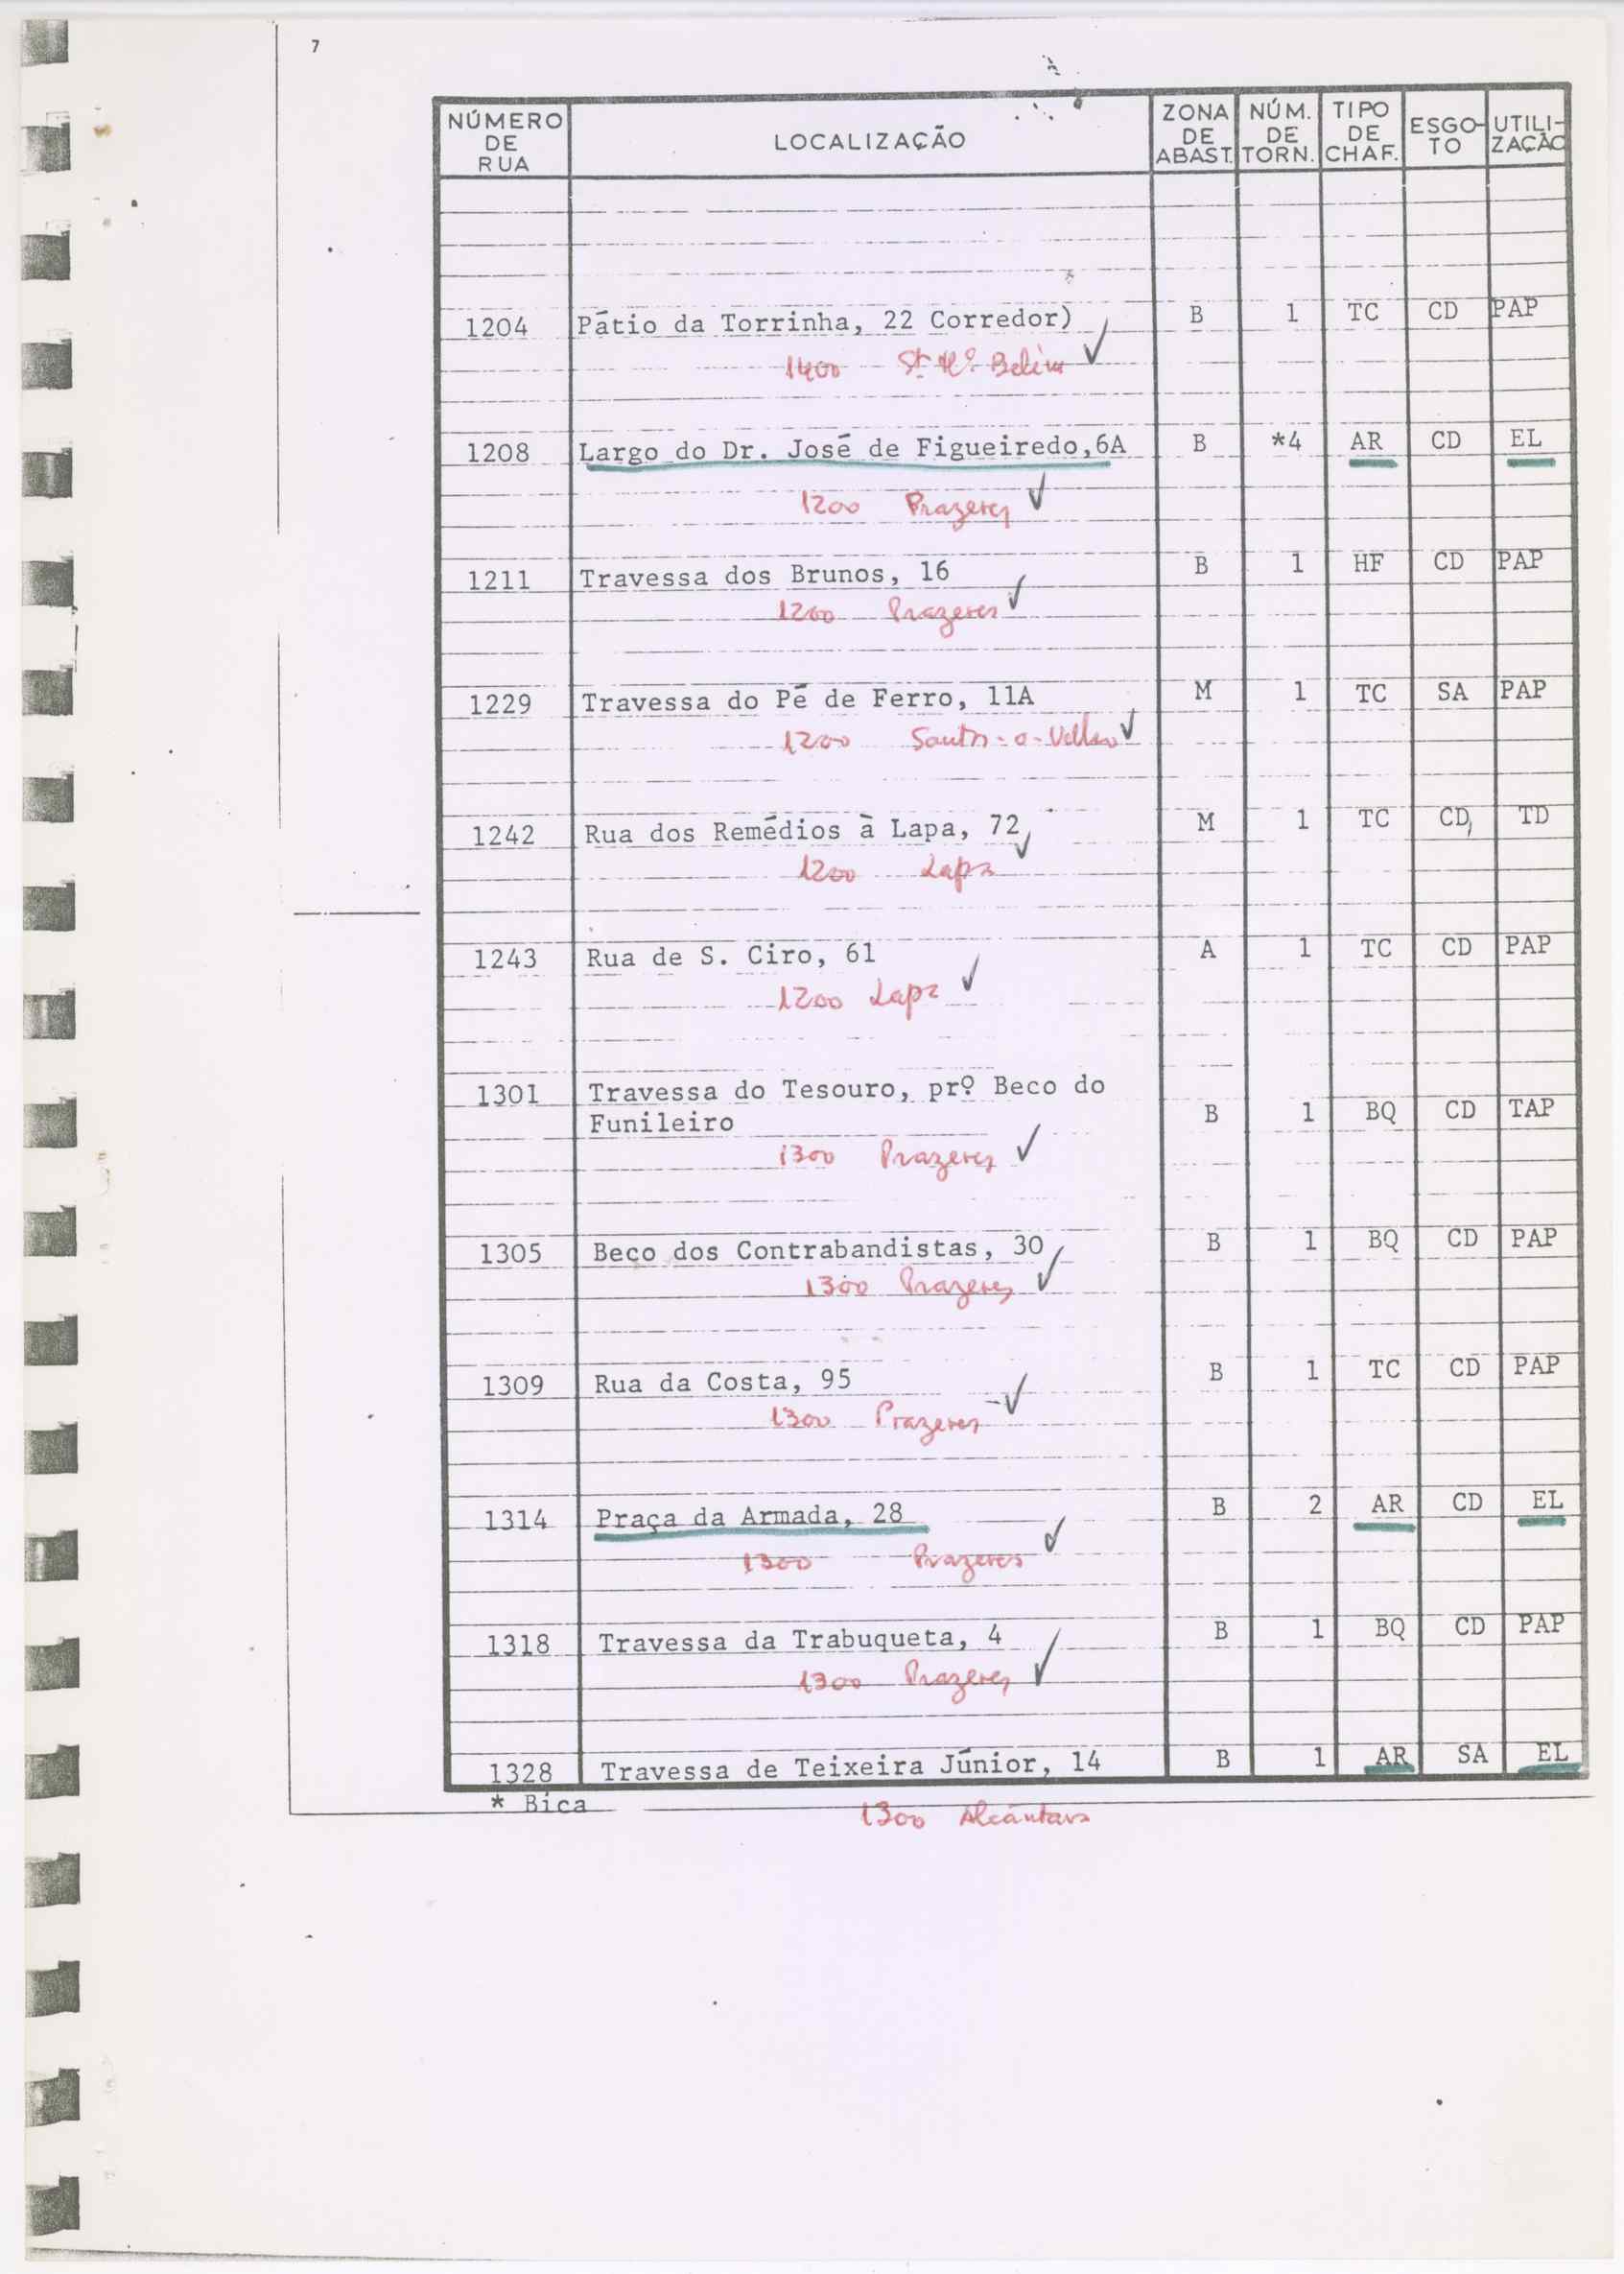 7
NÚMERO DE RUA LOCALIZAÇÃO ZONA DE ABAST. NÚM. DE TORN. TIPO DE CHAF. ESGO-TO UTILI-ZAÇÃO
1204 Pátio da Torrinha, 22 Corredor) B 1 TC CD PAP
1400 Stª Mª Belém
1208 Largo do Dr. José de Figueiredo,6A B *4 AR CD EL
1200 Prazeres
1211 Travessa dos Brunos, 16 B 1 HF CD PAP
1200 Prazeres
1229 Travessa do Pé de Ferro, 11A M 1 TC SA PAP
1200 Santos-o-Velho
1242 Rua dos Remédios à Lapa, 72 M 1 TC CD TD
1200 Lapa
1243 Rua de S. Ciro, 61 A 1 TC CD PAP
1200 Lapa
1301 Travessa do Tesouro, prº Beco do
Funileiro B 1 BQ CD TAP
1300 Prazeres
1305 Beco dos Contrabandistas, 30 B 1 BQ CD PAP
1300 Prazeres
1309 Rua da Costa, 95 B 1 TC CD PAP
1300 Prazeres
1314 Praça da Armada, 28 B 2 AR CD EL
1300 Prazeres
1318 Travessa da Trabuqueta, 4 B 1 BQ CD PAP
1300 Prazeres
1328 Travessa de Teixeira Júnior, 14 B 1 AR SA EL
* Bica
1300 Alcântara